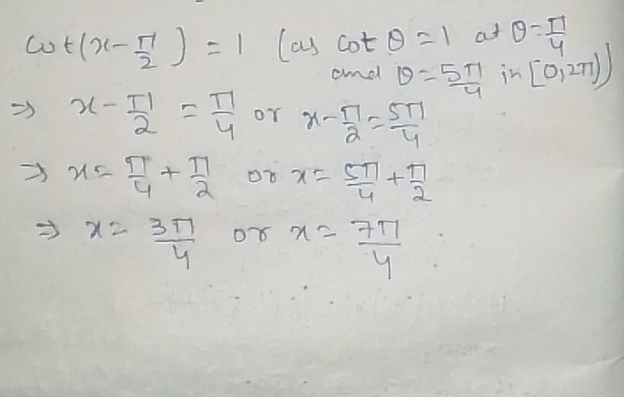 cot(x-π/2) = 1 (as cot θ = 1 at θ = π/4
and θ = 5π/4 in [0,2π))
⇒ x - π/2 = π/4 or x - π/2 = 5π/4
⇒ x = π/4 + π/2 or x = 5π/4 + π/2
⇒ x = 3π/4 or x = 7π/4.